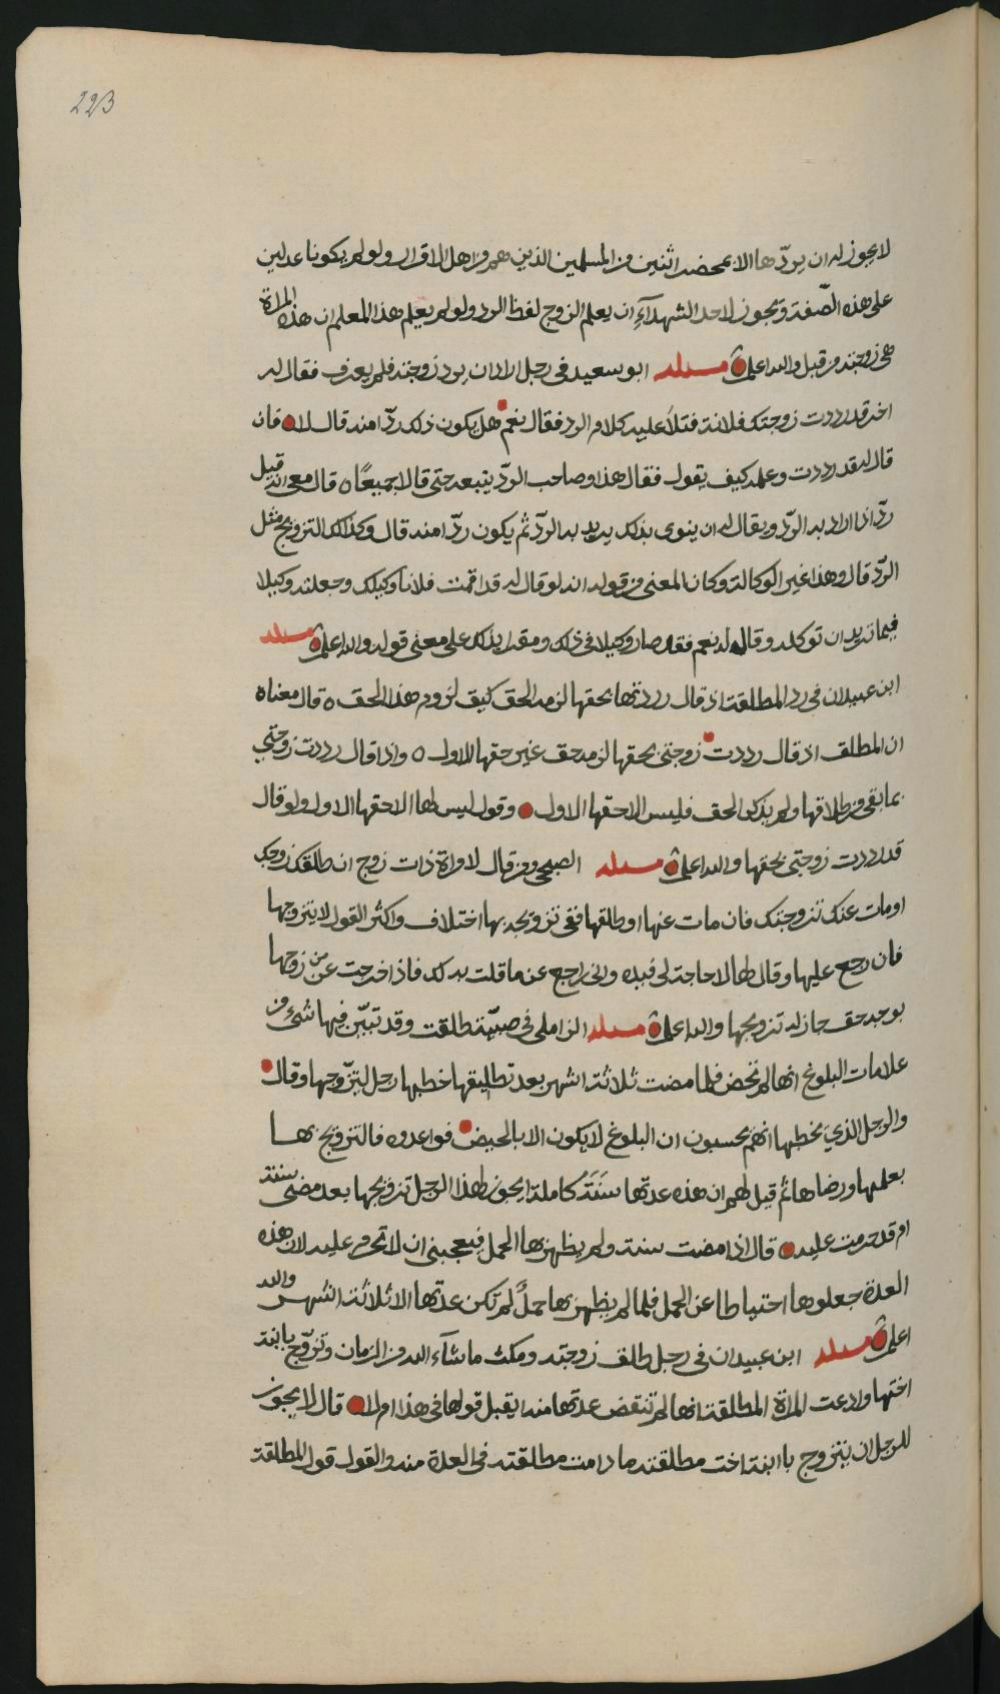 223
لا يجوز له ان يردّها الا بمحضر اثنين من المسلمين الذين هم من اهل الاقرار ولو لم يكونا عدلين
على هذه الصّفة ويجوز لاحد الشهدآء ان يعلم الزوج لفظ الرد ولو لم يعلم هذا المعلم ان هذه المراة
هى زوجته من قبل والله اعلم مسئله ابو سعيد فى رجل اراد ان يرد زوجته فلم يعرف فقال له
اخر قد رددت زوجتك فلانة فتلا عليه كلام الرد فقال نعم هل يكون ذلك ردّا منه قال لا فان
قال له قد رددت وعلمه كيف يقول فقال هذا وصاحب الردّ يتبعه حتى قالا جميعًا ه قال معى انه قيل
ردّ اذا اراد به الردّ ويقال له ان ينوى بذلك يريد به الردّ ثم يكون ردّا منه قال وكذلك التزويج مثل
الردّ قال وهذا غير الوكالة وكان المعنى من قوله انه لو قال له قد اقمت فلانا وكيلك وجعلته وكيلا
فيما تريد ان توكله وقال له نعم فقد صار وكيلا فى ذلك ومقرا بذلك على معنى قوله والله اعلم مسئله
ابن عبيدان فى رد المطلقة اذ قال رددتها بحقها لزمه الحق كيف لزوم هذا الحق ه قال معناه
ان المطلق اذ قال رددت زوجتى بحقها لزمه حق غير حقها الاول ه واذا قال رددت زوجتي
بما بقى من طلاقها ولم يذكر الحق فليس الا حقها الاول وقول ليس لها الا حقها الاول ولو قال
قد رددت زوجتى بحقها والله اعلم مسئله الصبحى ومن قال لامراة ذات زوج ان طلقك زوجك
او مات عنك تزوجتك فان مات عنها او طلقها ففى تزويجه بها اختلاف واكثر القول لا يتزوجها
فان رجع عليها وقال لها لا حاجة لى فيك وانى راجع عن ما قلت لك فاذا خرجت عن من زوجها
بوجه حق جاز له تزويجها والله اعلم مسئله الزاملى فى صبيّة طلقت وقد تبيّن فيها شئ من
علامات البلوغ انها لم تحض فلما مضت ثلاثة اشهر بعد تطليقها خطبها رجل ليتزّوجها وقال
والرجل الذي يخطبها انهم يحسبون ان البلوغ لا يكون الا بالحيض فواعدوه فالتزويج بها
بعلمها ورضاها ثم قيل لهم ان هذه عدتها سَنَةً كاملة ايجوز لهذا الرجل تزويجها بعد مضى سنة
ام قد حرمت عليه قال اذا مضت سنة ولم يظهر بها الحمل فيعجبنى ان لا تحرم عليه لان هذه
العدة جعلوها احتياطا عن الحمل فلما لم يظهر بها حملٌ لم تكن عدتها الا ثلاثة اشهر والله
اعلم مسئله ابن عبيدان فى رجل طلق زوجته ومكث ما شآء الله من الزمان وتزوّج بابنة
اختها وادعت المراة المطلقة انها لم تنقض عدتها منه ايقبل قولها فى هذا ام لا قال لا يجوز
للرجل ان يتزوج باابنة اخت مطلقته ما دامت مطلقته فى العدة منه والقول قول المطلقة